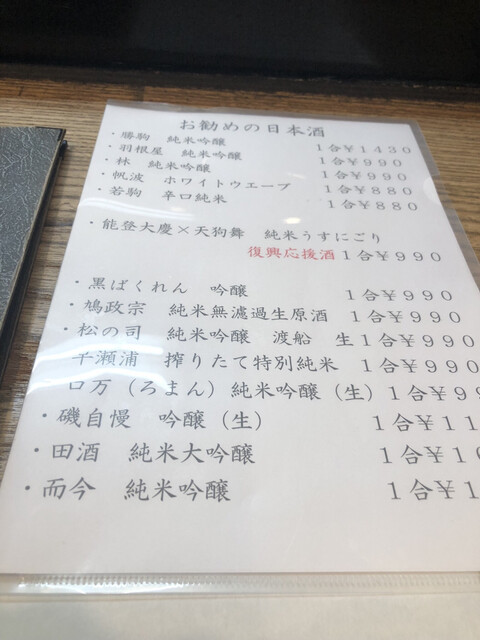 お勧めの日本酒
・勝駒 純米吟醸 1合¥1430
・羽根屋 純米吟醸 1合¥990
・林 純米吟醸 1合¥990
・帆波 ホワイトウエーブ 1合¥880
若駒 辛口純米 1合¥880
・能登大慶×天狗舞 純米うすにごり
復興応援酒1合¥990
・黒ばくれん 吟醸 1合¥990
・鳩政宗 純米無濾過生原酒 1合¥990
・松の司 純米吟醸 渡船 生1合¥990
平瀬浦 搾りたて特別純米 1合¥990
ロ万(ろまん)純米吟醸(生)1合¥99
・磯自慢 吟醸(生) 1合¥11
・田酒 純米大吟醸 1合¥1
・而今 純米吟醸 1合¥1